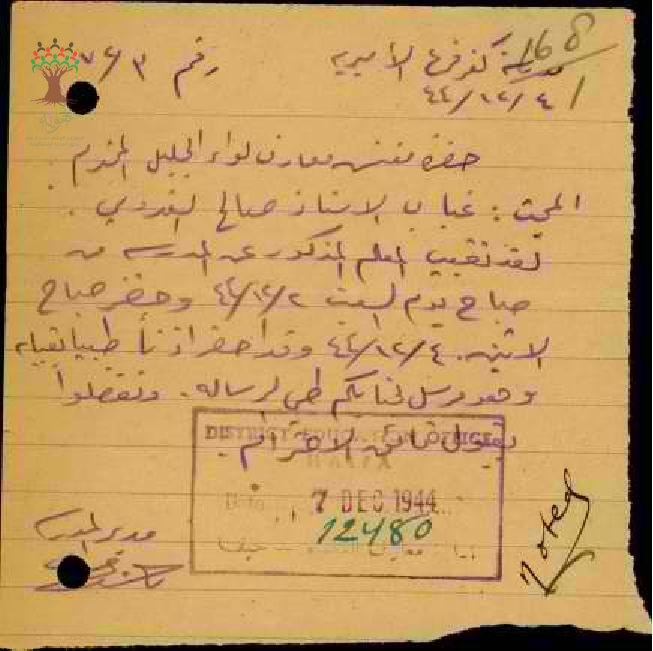 168
مدرسة كفر قرع الأميرية
رقم ٧٦/٣
٤٤/١٢/٤
حضرة مفتش معارف لواء الجليل المحترم
المبحث : غياب الاستاذ صالح
لقد تغيب المعلم المذكور عن المدرسة من
صباح يوم السبت ٤٤/١٢/٢ وحضر صباح
الاثنين ٤٤/١٢/٤ وقد احضر اذناً طبياً بغيابه
وهو مرسل لجنابكم طي الرسالة. وتفضلوا
بقبول فائق الاحترام.
DISTRICT EDUCATION OFFICE
HAIFA
Date 7 DEC 1944
12480
مدير المدرسة
Noted